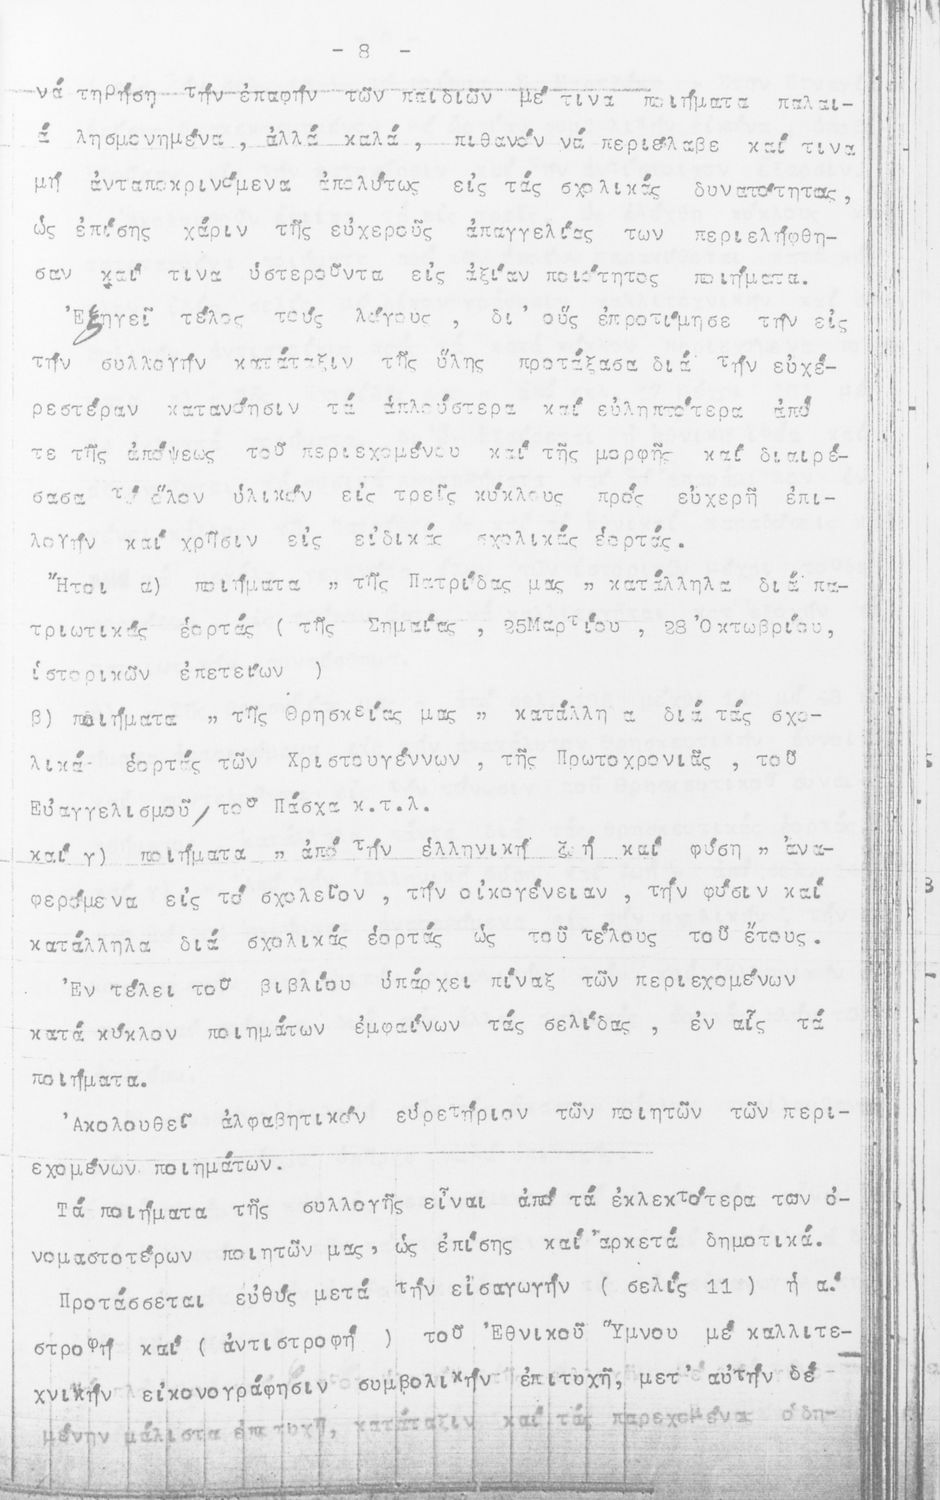 - 8 -
νά τηρήση τήν ἐπαφήν τῶν παιδιῶν μέ τινα ποιήματα παλαι-
ά λησμονημένα , ἀλλά καλά , πιθανόν νά περιέλαβε καί τινα
μή ἀνταποκρινόμενα ἀπολύτως εἰς τάς σχολικάς δυνατότητας,
ὡς ἐπίσης χάριν τῆς εὐχεροῦς ἀπαγγελίας των περιελήφθη-
σαν καί τινα ὑστεροῦντα εἰς ἀξίαν ποιότητος ποιήματα.
Ἐξηγεῖ τέλος τούς λόγους , δι' οὕς ἐπροτίμησε τήν εἰς
τήν συλλογήν κατάταξιν τῆς ὕλης προτάξασα διά τήν εὐχέ-
ρεστέραν κατανόησιν τά ἁπλούστερα καί εὐληπτότερα ἀπό
τε τῆς ἀπόψεως τοῦ περιεχομένου καί τῆς μορφῆς καί διαιρέ-
σασα τό ὅλον ὑλικόν εἰς τρεῖς κύκλους πρός εὐχερῆ ἐπι-
λογήν καί χρῆσιν εἰς εἰδικάς σχολικάς ἑορτάς.
Ἤτοι α) ποιήματα „ τῆς Πατρίδας μας „ κατάλληλα διά πα-
τριωτικάς ἑορτάς ( τῆς Σημαίας , 25Μαρτίου , 28 Ὀκτωβρίου,
ἱστορικῶν ἐπετείων )
β) ποιήματα „ τῆς Θρησκείας μας „ κατάλλη α διά τάς σχο-
λικά- ἑορτάς τῶν Χριστουγέννων , τῆς Πρωτοχρονιᾶς , τοῦ
Εὐαγγελισμοῦ/ τοῦ Πάσχα κ.τ.λ.
καί γ) ποιήματα „ ἀπό τήν ἑλληνική ζωή καί φύση „ ἀνα-
φερόμενα εἰς τό σχολεῖον , τήν οἰκογένειαν , τήν φύσιν καί
κατάλληλα διά σχολικάς ἑορτάς ὡς τοῦ τέλους τοῦ ἔτους.
Ἐν τέλει τοῦ βιβλίου ὑπάρχει πίναξ τῶν περιεχομένων
κατά κύκλον ποιημάτων ἐμφαίνων τάς σελίδας , ἐν αἷς τά
ποιήματα.
Ἀκολουθεῖ ἀλφαβητικόν εὑρετήριον τῶν ποιητῶν τῶν περι-
εχομένων ποιημάτων.
Τά ποιήματα τῆς συλλογῆς εἶναι ἀπό τά ἐκλεκτότερα των ὀ-
νομαστοτέρων ποιητῶν μας, ὡς ἐπίσης καί ἀρκετά δημοτικά.
Προτάσσεται εὐθύς μετά τήν εἰσαγωγήν ( σελίς 11 ) ἡ α΄
στροφή καί ( ἀντιστροφή ) τοῦ Ἐθνικοῦ Ὕμνου μέ καλλιτε-
χνικήν εἰκονογράφησιν συμβολικήν ἐπιτυχῆ, μετ' αὐτήν δέ
μένην μάλιστα ἐπιτυχῆ, κατάταξιν καί τάς παρεχομένας ὁδη-